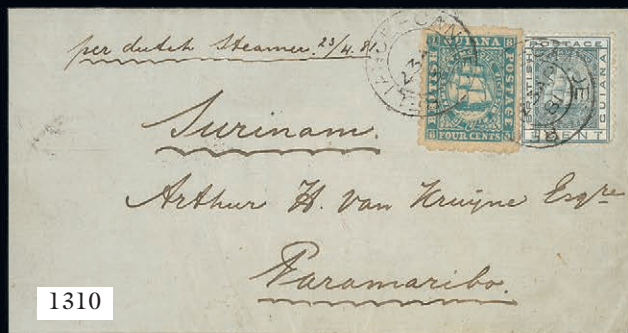 per dutch Steamer. 23/4. 81.
GUIANA
BRITISH
POSTAGE
FOUR CENTS
POSTAGE
GUIANA
CENT
Surinam.
Arthur H. van Kruijne Esqre
Paramaribo.
1310